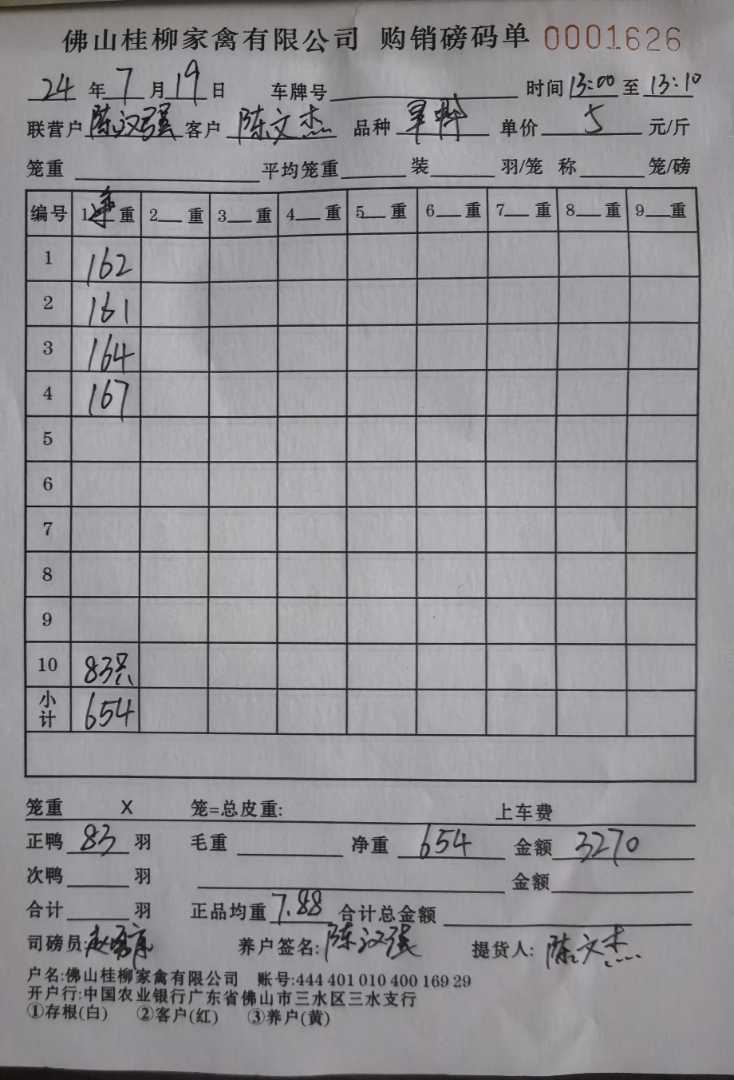 佛山桂柳家禽有限公司 购销磅码单 0001626
24 年 7 月 19 日 车牌号 时间 13:00 至 13:10
联营户 陈汉强 客户 陈文杰 品种 单价 5 元/斤
笼重 平均笼重 装 羽/笼 称 笼/磅
编号 1 重 2 重 3 重 4 重 5 重 6 重 7 重 8 重 9 重
1 162
2 161
3 164
4 167
5
6
7
8
9
10 83只
小计 654
笼重 X 笼=总皮重: 上车费
正鸭 83 羽 毛重 净重 654 金额 3270
次鸭 羽 金额
合计 羽 正品均重 7.88 合计总金额
司磅员: 养户签名: 陈汉强 提货人: 陈文杰
户名:佛山桂柳家禽有限公司 账号:444 401 010 400 169 29
开户行:中国农业银行广东省佛山市三水区三水支行
①存根(白) ②客户(红) ③养户(黄)